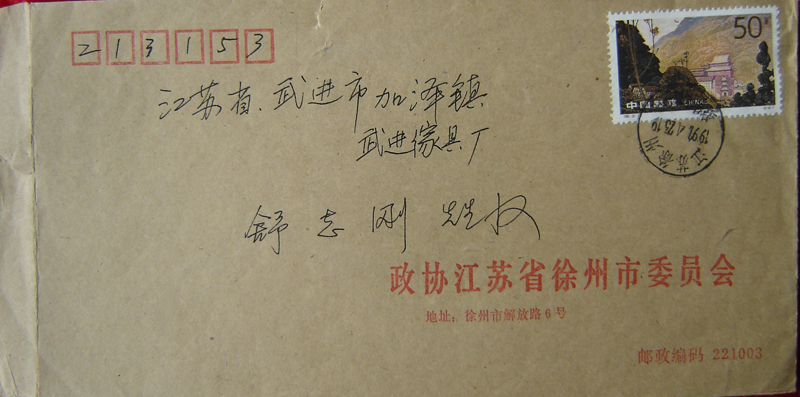 213153
50分
中国邮政 CHINA
江苏省武进市加泽镇
武进傢具厂
江苏徐州
舒志刚 先生收
政协江苏省徐州市委员会
地址：徐州市解放路6号
邮政编码 221003